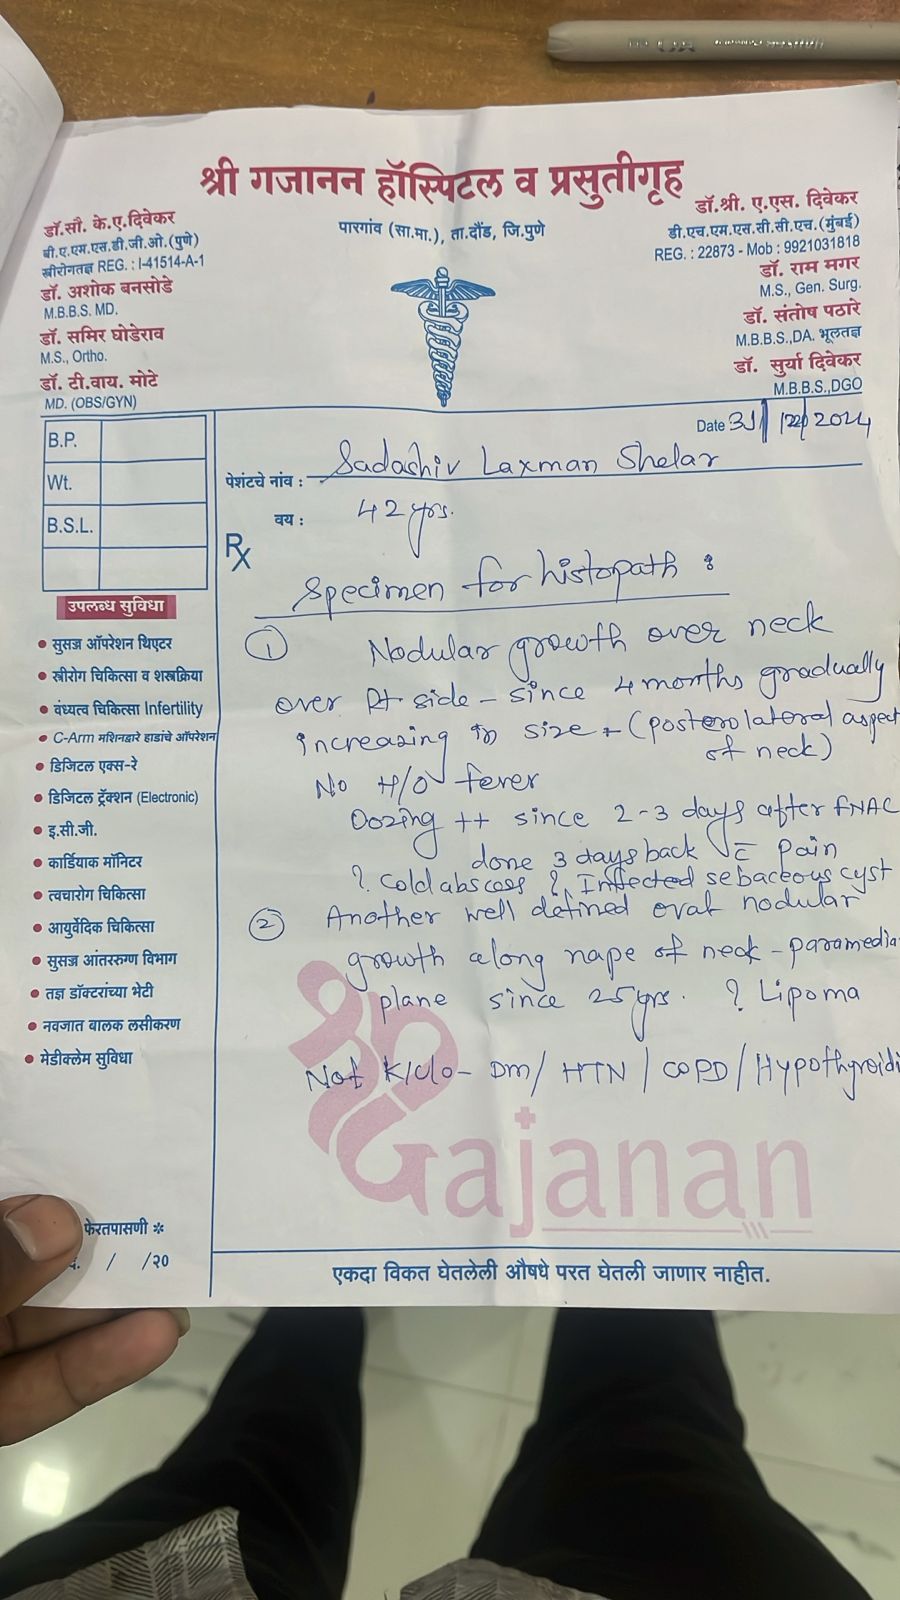 श्री गजानन हॉस्पिटल व प्रसुतीगृह
पारगांव (सा.मा.), ता.दौंड, जि.पुणे
डॉ.सौ. के.ए.दिवेकर
बी.ए.एम.एस.डी.जी.ओ.(पुणे)
स्त्रीरोगतज्ञ REG. : I-41514-A-1
डॉ. अशोक बनसोडे
M.B.B.S. MD.
डॉ. समिर घोडेराव
M.S., Ortho.
डॉ. टी.वाय. मोटे
MD. (OBS/GYN)
डॉ.श्री. ए.एस. दिवेकर
डी.एच.एम.एस.सी.सी.एच.(मुंबई)
REG. : 22873 - Mob : 9921031818
डॉ. राम मगर
M.S., Gen. Surg.
डॉ. संतोष पठारे
M.B.B.S.,DA. भूलतज्ञ
डॉ. सुर्या दिवेकर
M.B.B.S.,DGO
B.P.
Wt.
B.S.L.
उपलब्ध सुविधा
• सुसज्ज ऑपरेशन थिएटर
• स्त्रीरोग चिकित्सा व शस्त्रक्रिया
• वंध्यत्व चिकित्सा Infertility
• C-Arm मशिनद्वारे हाडांचे ऑपरेशन
• डिजिटल एक्स-रे
• डिजिटल ट्रॅक्शन (Electronic)
• इ.सी.जी.
• कार्डियाक मॉनिटर
• त्वचारोग चिकित्सा
• आयुर्वेदिक चिकित्सा
• सुसज्ज आंतररुग्ण विभाग
• तज्ञ डॉक्टरांच्या भेटी
• नवजात बालक लसीकरण
• मेडीक्लेम सुविधा
फेरतपासणी *
/ /२०
Date 31/12/2024
पेशंटचे नांव : Sadashiv Laxman Shelar
वय : 42 yrs.
Rx
Specimen for histopath :
① Nodular growth over neck
over Rt side - since 4 months gradually
increasing in size - (posterolateral aspect
of neck)
No H/O fever
Oozing ++ since 2-3 days after FNAC
done 3 days back c̄ pain
? Cold abscess ? Infected sebaceous cyst
② Another well defined oval nodular
growth along nape of neck - paramedia
plane since 25 yrs. ? Lipoma
Not K/C/O - DM / HTN / COPD / Hypothyroidi
Gajanan
एकदा विकत घेतलेली औषधे परत घेतली जाणार नाहीत.